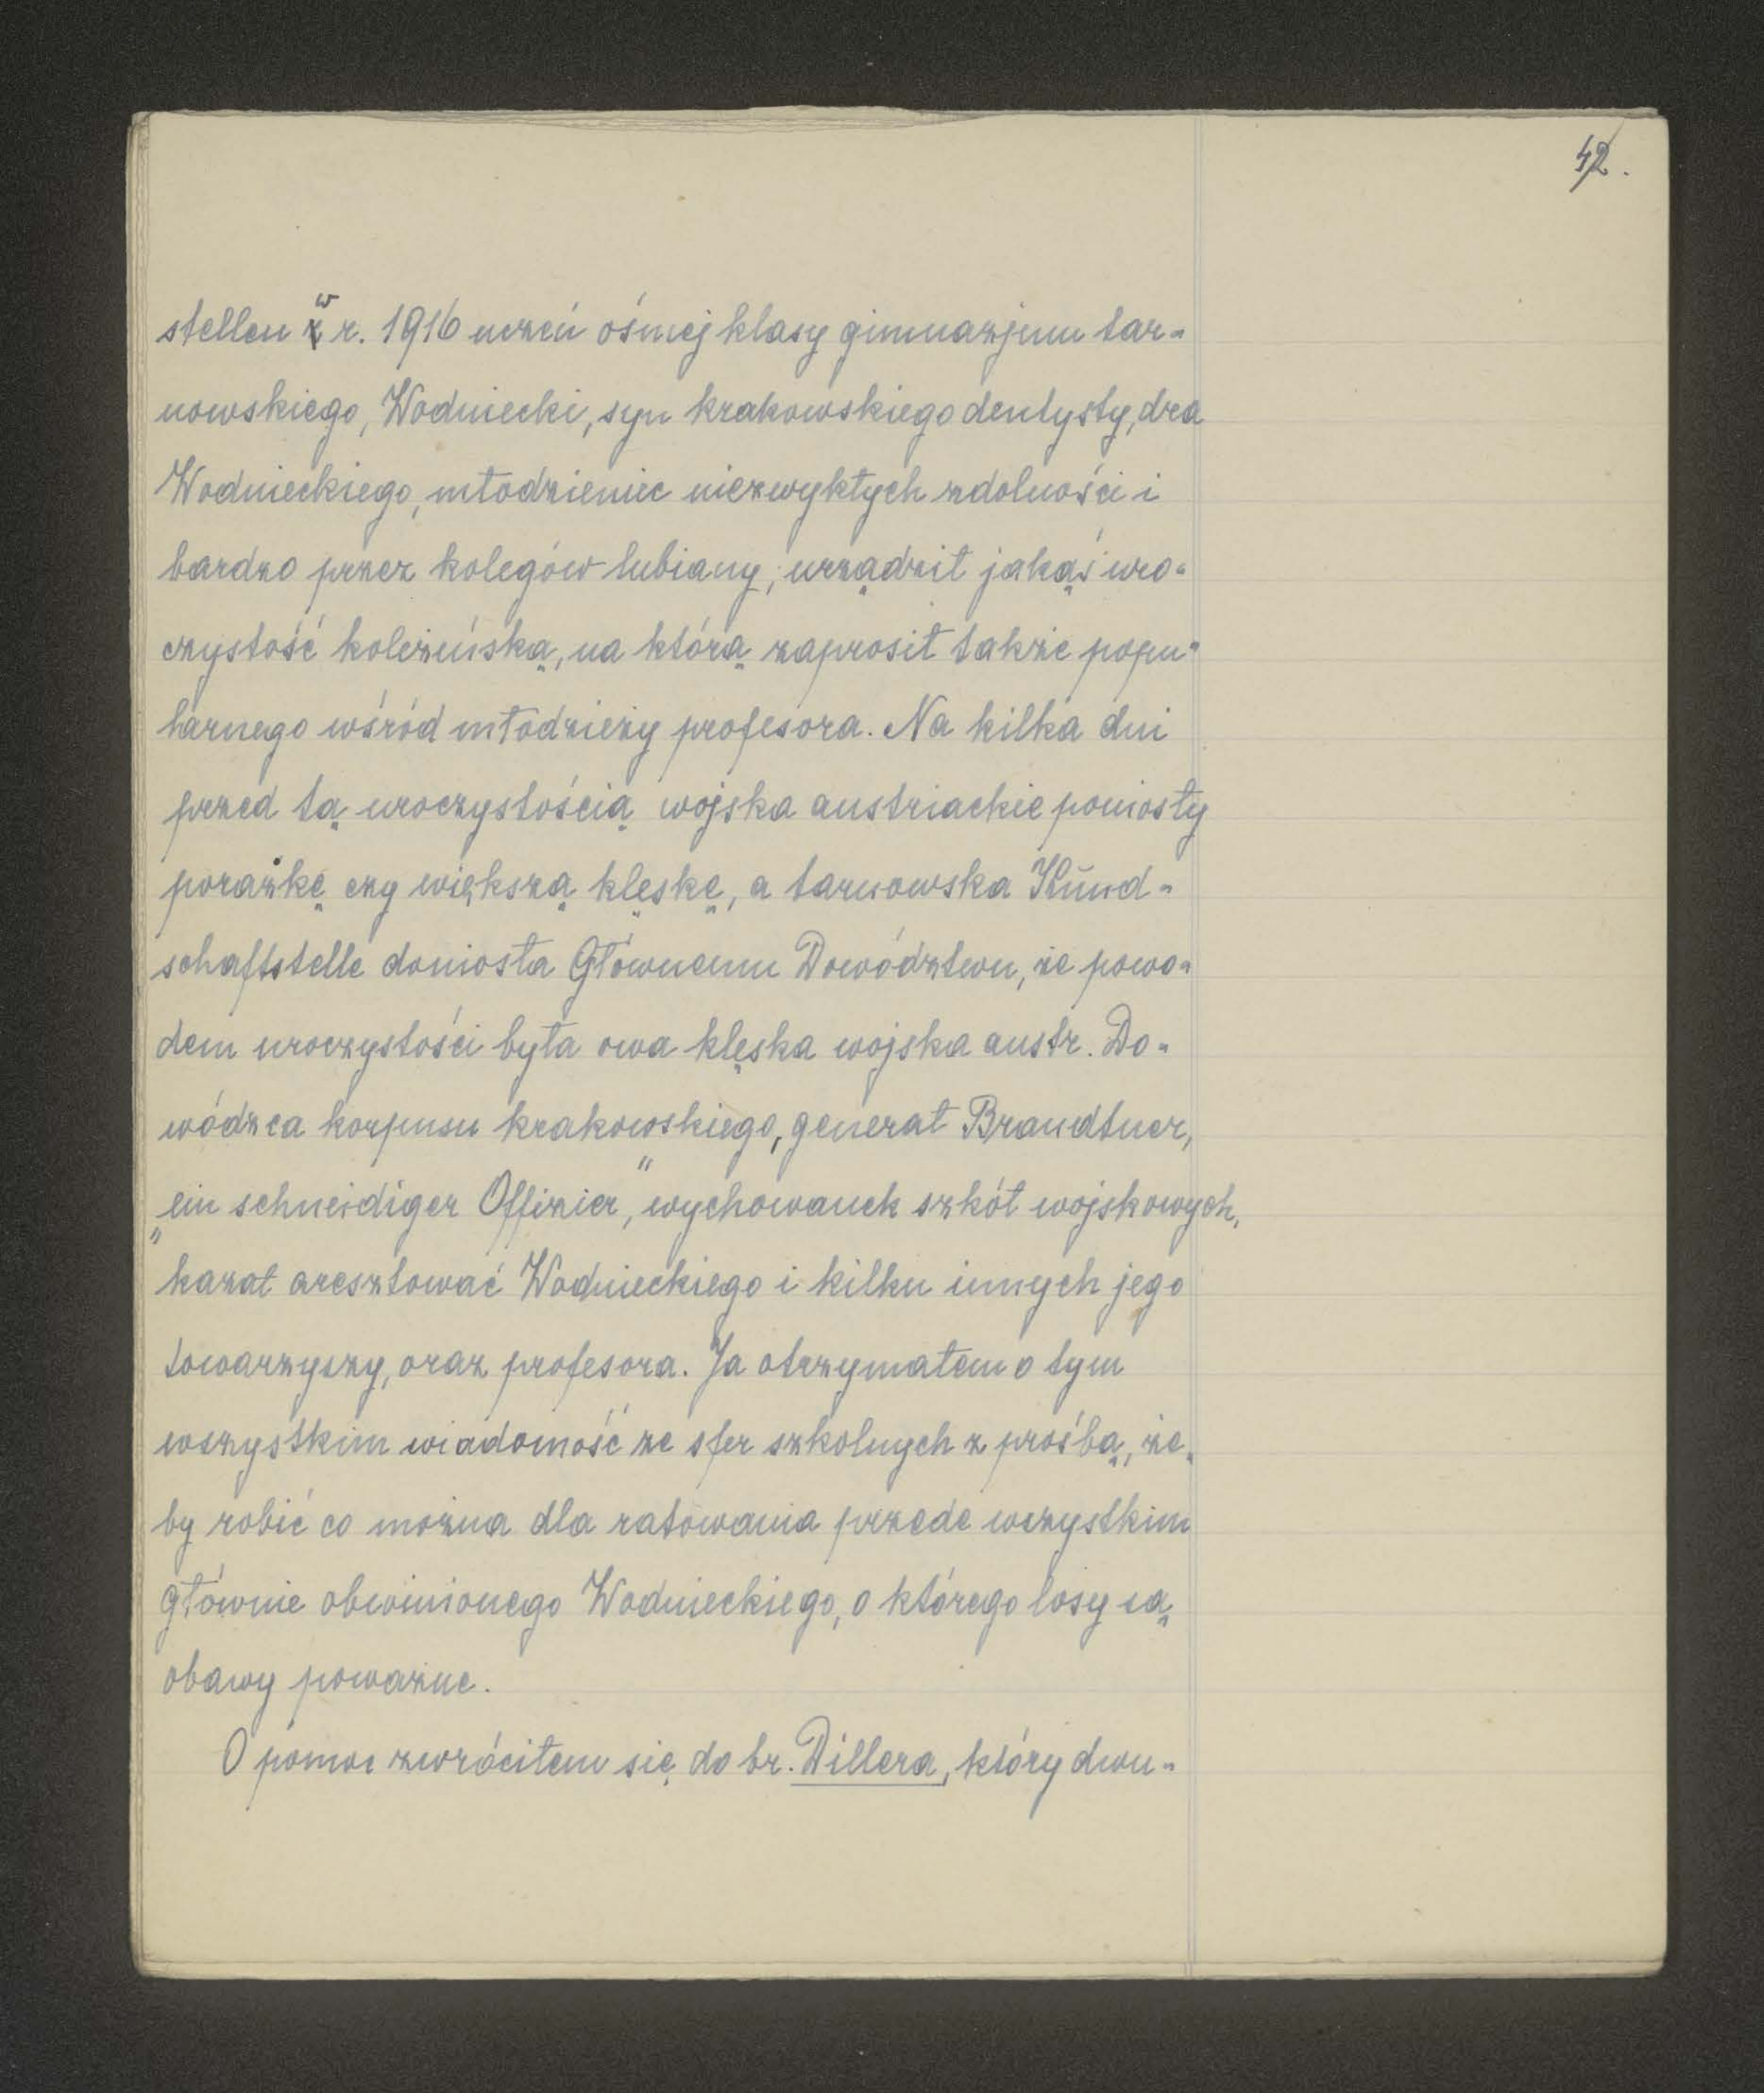 42.
stellen w r. 1916 uczeń ósmej klasy gimnazjum tar-
nowskiego, Wodniecki, syn krakowskiego dentysty, dra
Wodnieckiego, młodzieniec niezwykłych zdolności i
bardzo przez kolegów lubiany, urządził jakąś uro-
czystość koleżeńską, na którą zaprosił także popu-
larnego wśród młodzieży profesora. Na kilka dni
przed tą uroczystością wojska austriackie poniosły
porażkę czy większą klęskę, a tarnowska Kund-
schaftstelle doniosła Głównemu Dowództwu, że powo-
dem uroczystości była owa klęska wojska austr. Do-
wódzca korpusu krakowskiego, generał Brandtner,
„ein schneidiger Offizier", wychowanek szkół wojskowych,
kazał aresztować Wodnieckiego i kilku innych jego
towarzyszy, oraz profesora. Ja otrzymałem o tym
wszystkim wiadomość ze sfer szkolnych z prośbą, że-
by robić co można dla ratowania przede wszystkim
głównie obwinionego Wodnieckiego, o którego losy są
obawy poważne.
O pomoc zwróciłem się do br. Dillera, który dwu-